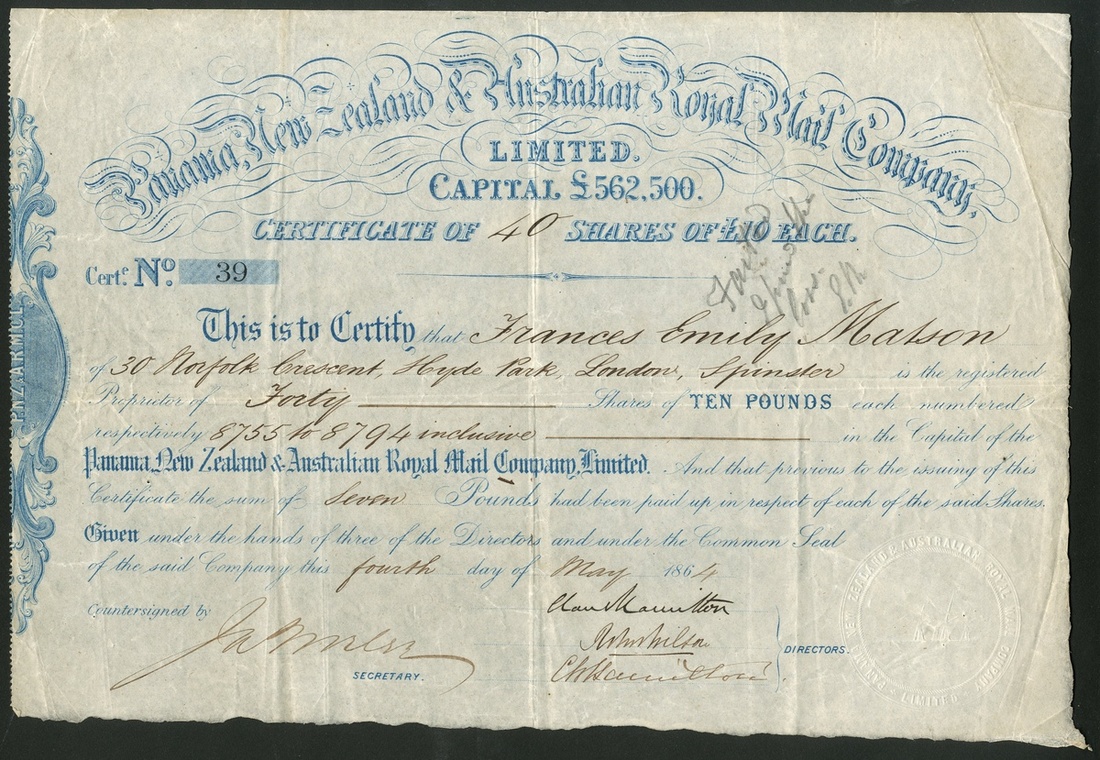 Panama, New Zealand & Australian Royal Mail Company,
LIMITED.
CAPITAL £562,500.
CERTIFICATE OF 40 SHARES OF £10 EACH.
Certe. No. 39
This is to Certify that Frances Emily Matson
of 30 Norfolk Crescent, Hyde Park, London, Spinster is the registered
Proprietor of Forty Shares of TEN POUNDS each numbered
respectively 8755 to 8794 inclusive in the Capital of the
Panama, New Zealand & Australian Royal Mail Company, Limited. And that previous to the issuing of this
Certificate the sum of Seven Pounds had been paid up in respect of each of the said Shares.
Given under the hands of three of the Directors and under the Common Seal
of the said Company this fourth day of May 1864
Countersigned by
SECRETARY.
Hamilton
John Wilson
Hamilton
DIRECTORS.
PANAMA NEW ZEALAND & AUSTRALIAN ROYAL MAIL COMPANY
LIMITED
P.N.Z.A.R.M.C.L.